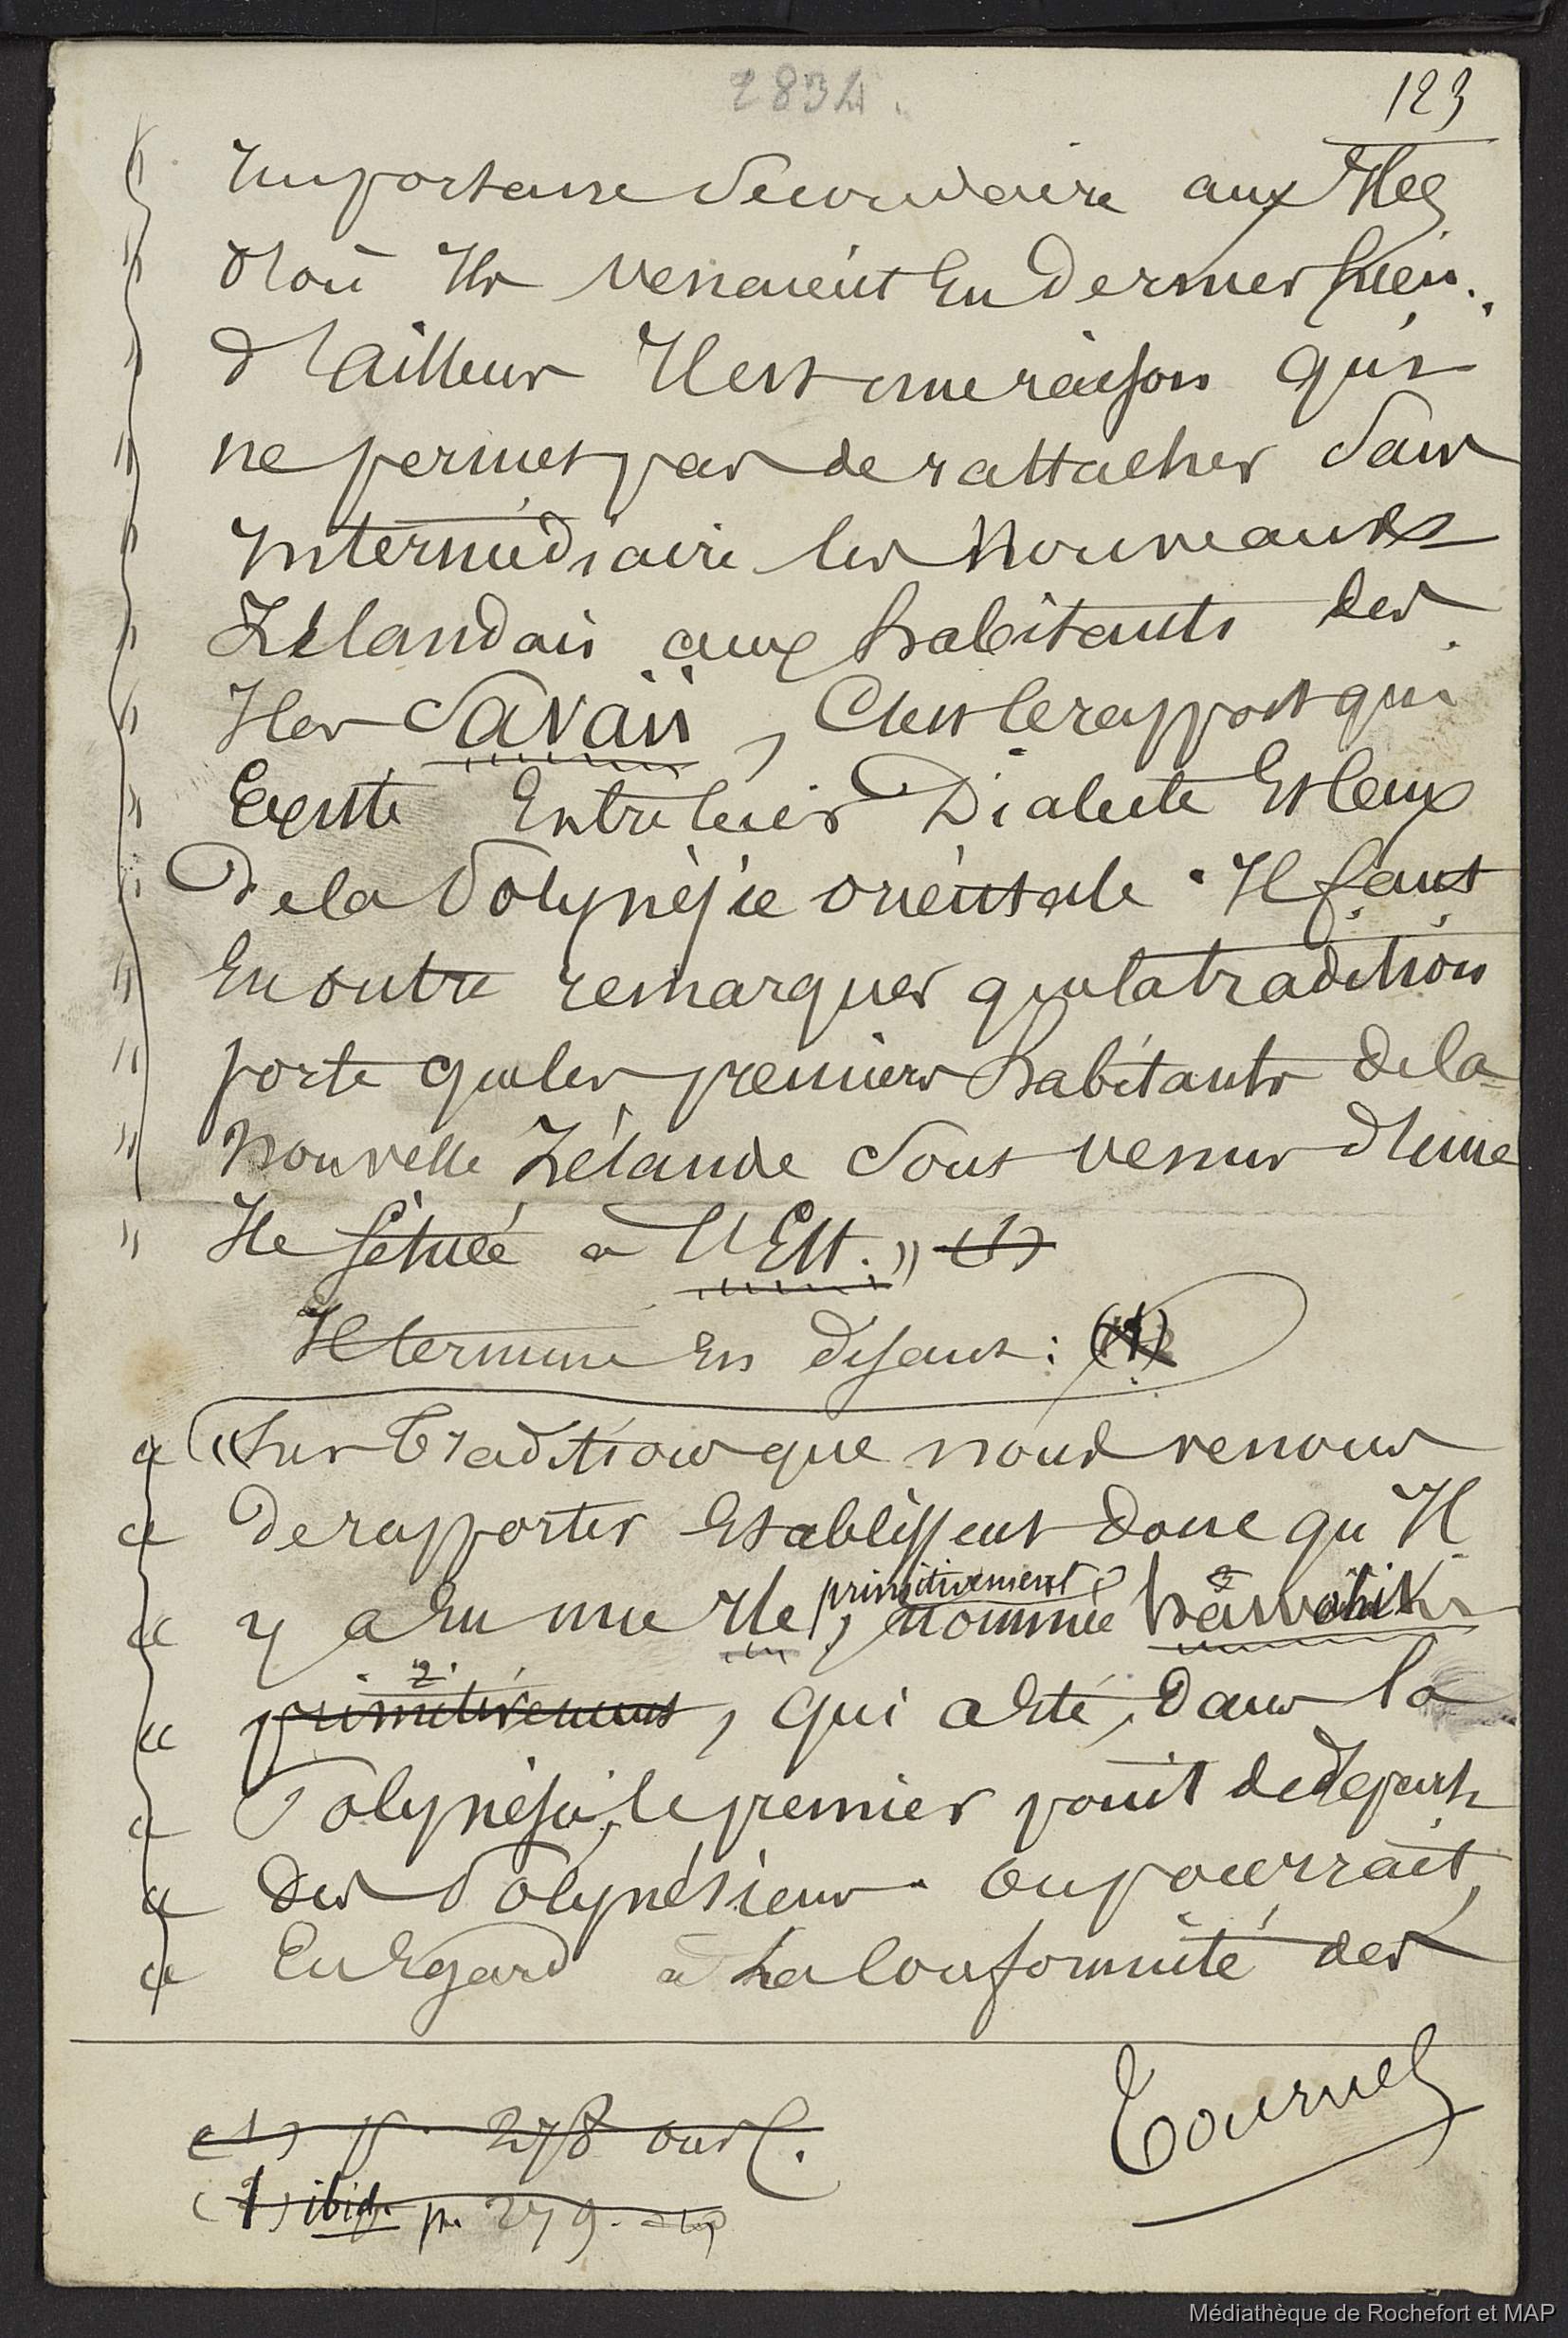 2834.
123
" Importance Secondaire aux Iles
" d'où Ils venaient En dernier lieu.
" d'ailleurs Il est une raison qui
" ne permet pas de rattacher Sans
" Intermédiaire les Nouveaux
" Zélandais aux habitants des
" Iles Savaii, C'est le rapport qui
" Existe Entre leurs Dialecte Et Ceux
" De la Polynésie orientale. Il faut
" En outre remarquer que la tradition
" porte que les premiers habitants de la
" Nouvelle Zélande Sont venus d'une
" Ile Située à l'Est." (1)
Il termine En disant : (1)
" « Les Traditions que nous venons
« De rapporter Etablissent donc qu'Il
primitivement
« y a Eu une Ile, nommée
« primitivement, qui a Eté, Dans la
« Polynésie, le premier point de départ
« des Polynésiens. On pourrait,
« Eu Egard à La Conformité des
(1) p. 278 ouv. C.
(1) ibid. p. 279.
Tournel
Médiathèque de Rochefort et MAP